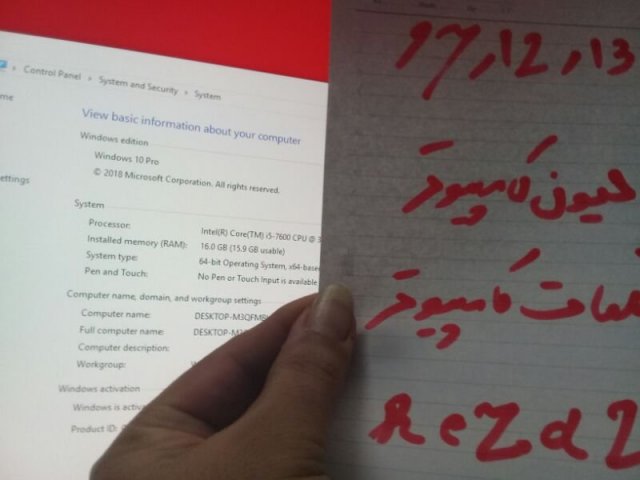 Control Panel > System and Security > System
me
ettings
View basic information about your computer
Windows edition
Windows 10 Pro
© 2018 Microsoft Corporation. All rights reserved.
System
Processor: Intel(R) Core(TM) i5-7600 CPU @ 3
Installed memory (RAM): 16.0 GB (15.9 GB usable)
System type: 64-bit Operating System, x64-base
Pen and Touch: No Pen or Touch Input is available
Computer name, domain, and workgroup settings
Computer name:
Full computer name:
Computer description:
Workgroup:
Windows activation
Windows is activ
Product ID:
97,12,13
کامپیوتر
کامپیوتر